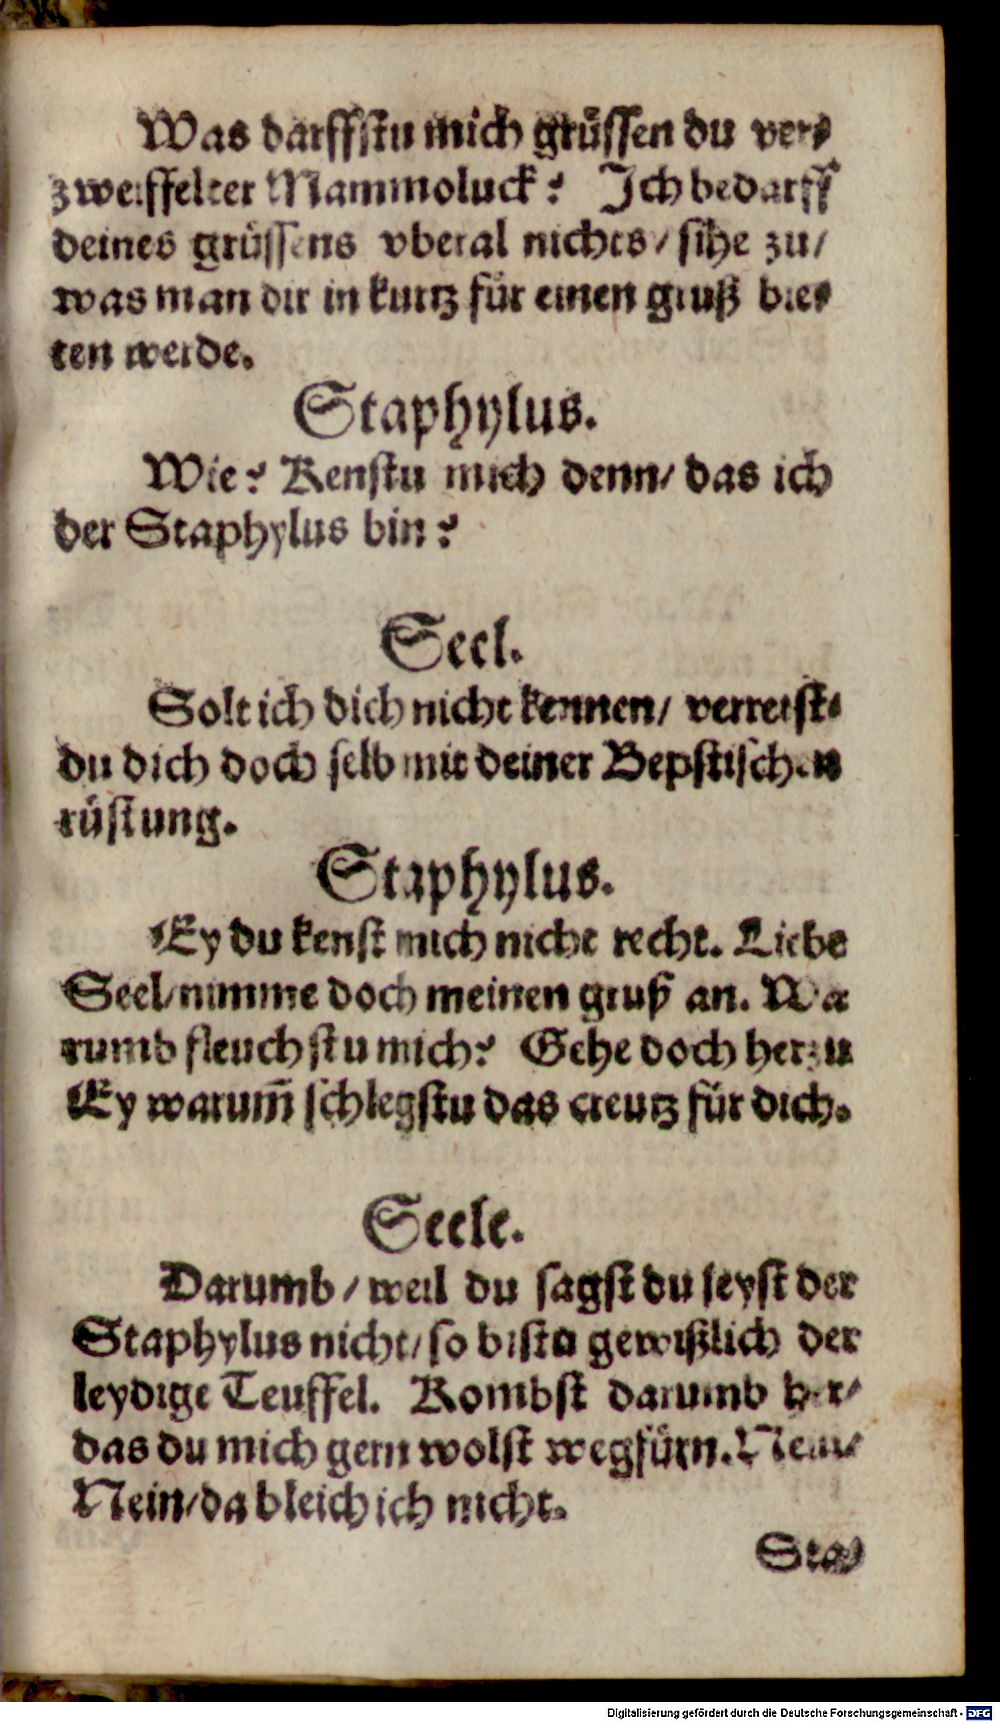 Was darffstu mich grüssen du ver⸗
zweiffelter Mammoluck? Ich bedarff
deines grüssens vberal nichts / sihe zu /
was man dir in kurtz für einen gruß bie⸗
ten werde.
Staphylus.
Wie? Kenstu mich denn / das ich
der Staphylus bin?
Seel.
Solt ich dich nicht kennen / verretst⸗
du dich doch selb mit deiner Bepstischen
rüstung.
Staphylus.
Ey du kenst mich nicht recht. Liebe
Seel / nimme doch meinen gruß an. Wa
rumb fleuchstu mich? Gehe doch herzu
Ey warum̃ schlegstu das creutz für dich.
Seele.
Darumb / weil du sagst du seyst der
Staphylus nicht / so bistu gewißlich der
leydige Teuffel. Kombst darumb her /
das du mich gern wolst wegfürn. Nein /
Nein / da bleich ich nicht.
Sta⸗
Digitalisierung gefördert durch die Deutsche Forschungsgemeinschaft - DFG